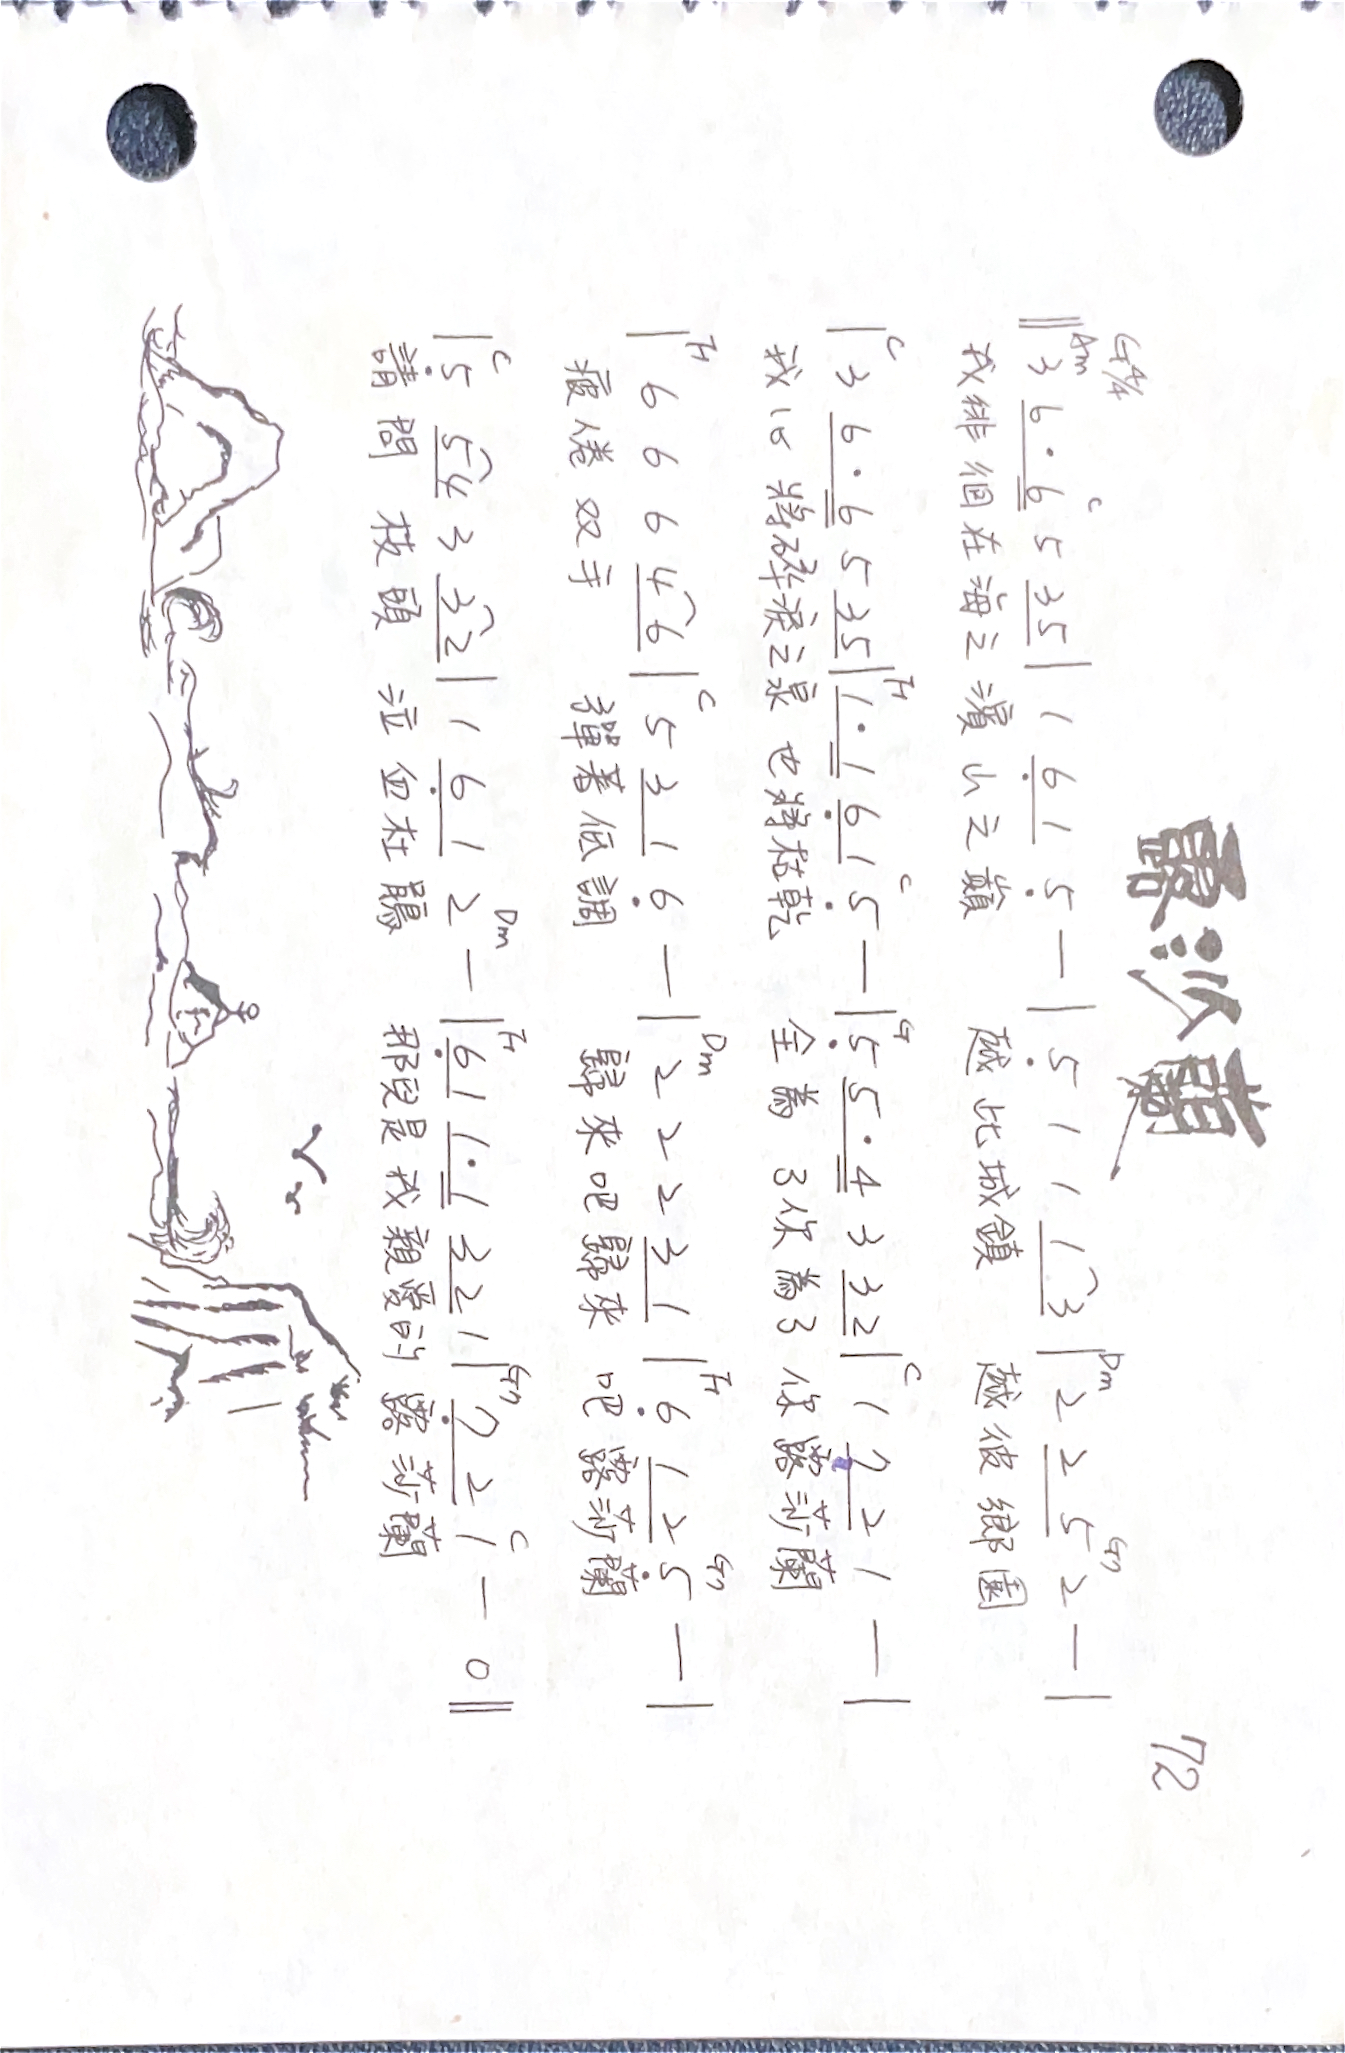 露沙蘭
72
G 4/4
Am C Dm G7
‖ 3 6 · 6 5 3 5 | 1 6 1 5 — | 5 1 1 1 3 | 2 2 5 2 — |
我徘徊在海之濱山之巔 越此城鎮 越彼鄉園
C F C G C
| 3 6 · 6 5 3 5 | 1 · 1 6 1 5 — | 5 5 · 4 3 3 2 | 1 7 2 1 — |
我心將碎淚之泉也將枯乾 全為了你為了你露莎蘭
F C Dm F G7
| 6 6 6 4 6 | 5 3 1 6 — | 2 2 2 3 1 | 6 1 2 5 — |
疲倦双手 彈著低調 歸來吧歸來吧露莎蘭
C Dm F G7 C
| 5 5 4 3 3 2 | 1 6 1 2 — | 6 1 1 · 1 3 2 1 | 7 2 1 — 0 ‖
請問枝頭泣血杜鵑 那兒是我親愛的露莎蘭